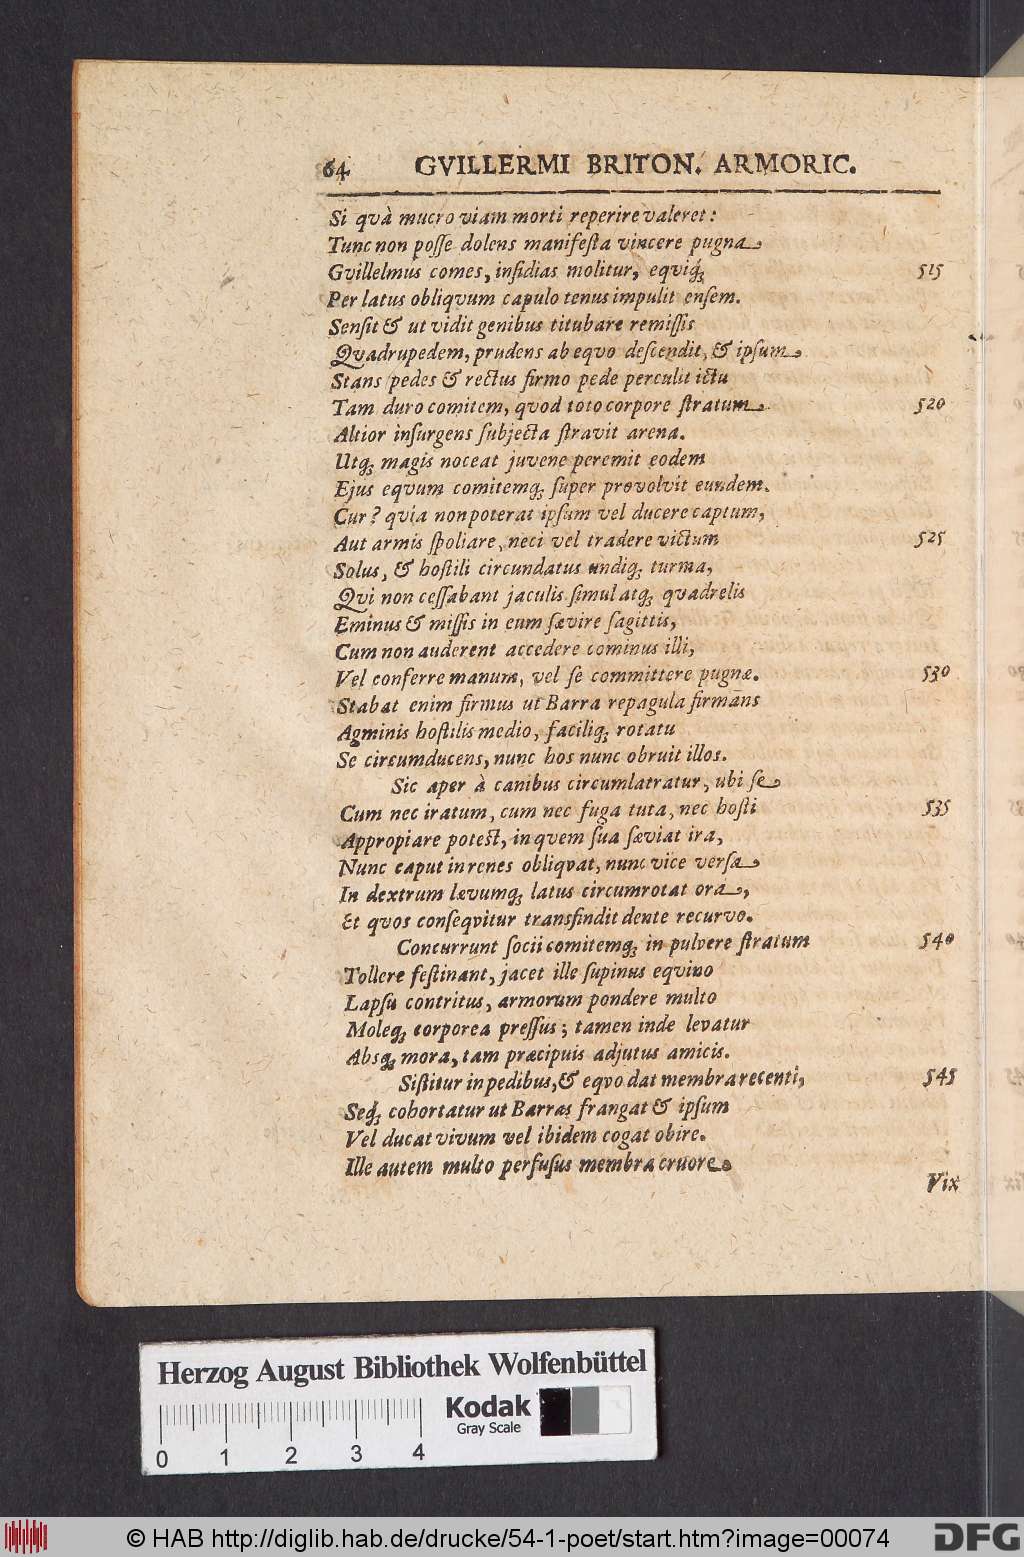 64 GVILLERMI BRITON. ARMORIC.
Si quà mucro viam morti reperire valeret:
Tunc non posse dolens manifesta vincere pugna
Gvillelmus comes, insidias molitur, eqviq́ꝫ 515
Per latus obliqvum capulo tenus impulit ensem.
Sensit & ut vidit genibus titubare remissis
Qvadrupedem, prudens ab eqvo descendit, & ipsum
Stans pedes & rectus firmo pede perculit ictu
Tam duro comitem, qvod toto corpore stratum 520
Altior insurgens subjecta stravit arena.
Utqꝫ magis noceat juvene peremit eodem
Ejus eqvum comitemqꝫ super provolvit eundem.
Cur? qvia non poterat ipsum vel ducere captum,
Aut armis spoliare, neci vel tradere victum 525
Solus, & hostili circundatus undiqꝫ turma,
Qvi non cessabant jaculis simul atqꝫ quadrelis
Eminus & missis in eum sævire sagittis,
Cum non auderent accedere cominus illi,
Vel conferre manum, vel se committere pugnæ. 530
Stabat enim firmus ut Barra repagula firmans
Agminis hostilis medio, faciliqꝫ rotatu
Se circumducens, nunc hos nunc obruit illos.
Sic aper à canibus circumlatratur, ubi se
Cum nec iratum, cum nec fuga tuta, nec hosti 535
Appropiare potest, in qvem sua sæviat ira,
Nunc caput in renes obliqvat, nunc vice versa
In dextrum lævumqꝫ latus circumrotat ora,
Et qvos conseqvitur transfindit dente recurvo.
Concurrunt socii comitemqꝫ in pulvere stratum 540
Tollere festinant, jacet ille supinus eqvino
Lapsu contritus, armorum pondere multo
Moleqꝫ corporea pressus; tamen inde levatur
Absqꝫ mora, tam præcipuis adjutus amicis.
Sistitur in pedibus, & eqvo dat membra recenti, 545
Seq́ꝫ cohortatur ut Barras frangat & ipsum
Vel ducat vivum vel ibidem cogat obire.
Ille autem multo perfusus membra cruore
Vix
Herzog August Bibliothek Wolfenbüttel
Kodak
Gray Scale
0 1 2 3 4
© HAB http://diglib.hab.de/drucke/54-1-poet/start.htm?image=00074
DFG